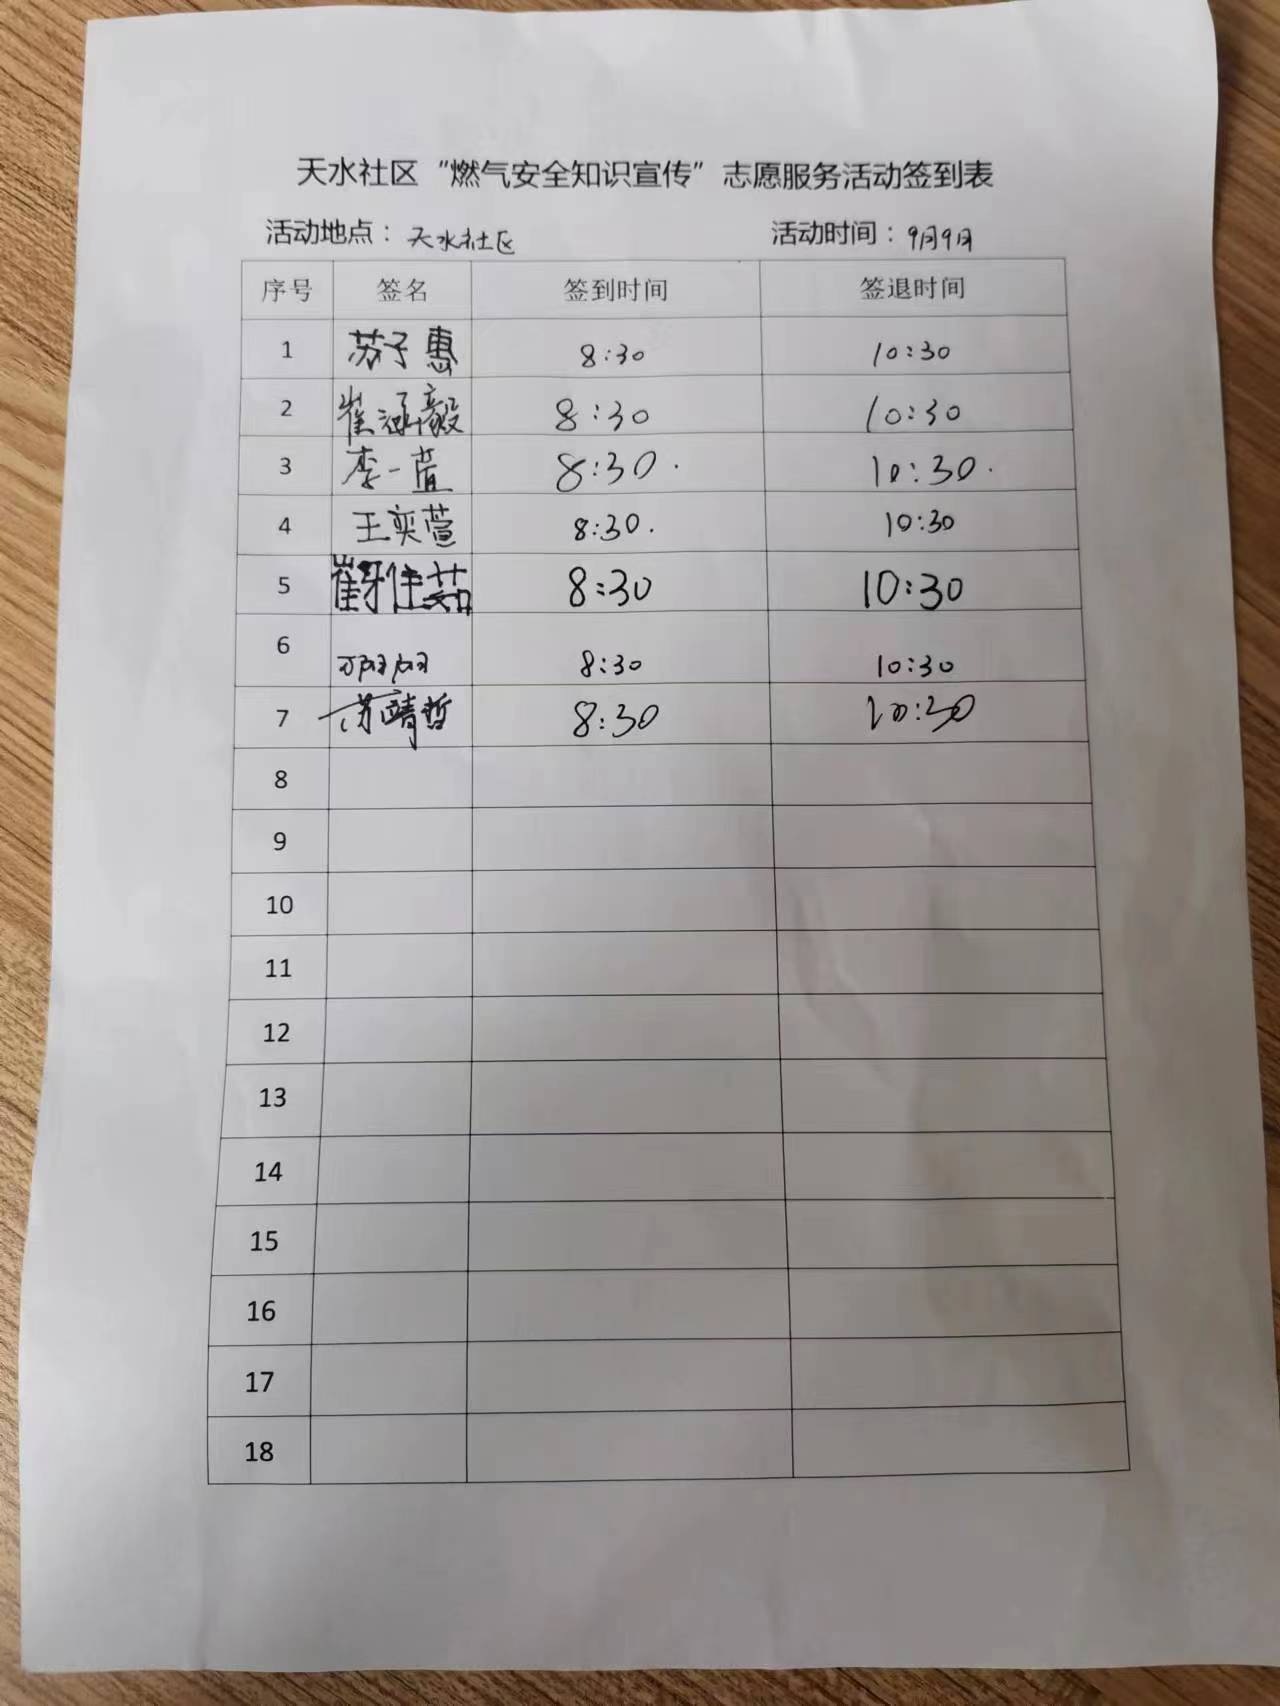 天水社区“燃气安全知识宣传”志愿服务活动签到表
活动地点：天水社区 活动时间：9月9月
序号 签名 签到时间 签退时间
1 苏子惠 8:30 10:30
2 崔涵毅 8:30 10:30
3 李一萱 8:30. 10:30.
4 王奕萱 8:30. 10:30
5 崔雅茹 8:30 10:30
6 8:30 10:30
7 苏靖哲 8:30 10:30
8
9
10
11
12
13
14
15
16
17
18